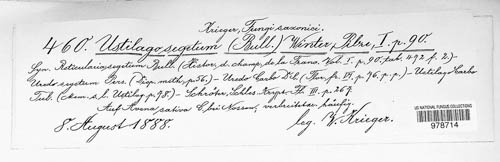 Krieger, Fungi saxonici.
460. Ustilago segetum (Bull.) Winter, Pilze, I. p. 90.
Syn. Reticularia segetum Bull. (Histor. d. champ. de la France. Vol. I. p. 90. pat. 472 f. 2). –
Uredo segetum Pers. (Disp. meth. p. 56.) – Uredo Carbo DC. (Flor. fr. VI. p. 76. p. p.) – Ustilago Carbo
Tul. (Mem. s. l. Ustilag. p. 78). – Schröter, Schles. Krypt. Fl. III. p. 267.
Auf Avena sativa L. bei Nossen, verbreitet häufig.
8. August 1888. leg. W. Krieger.
US NATIONAL FUNGUS COLLECTIONS
978714